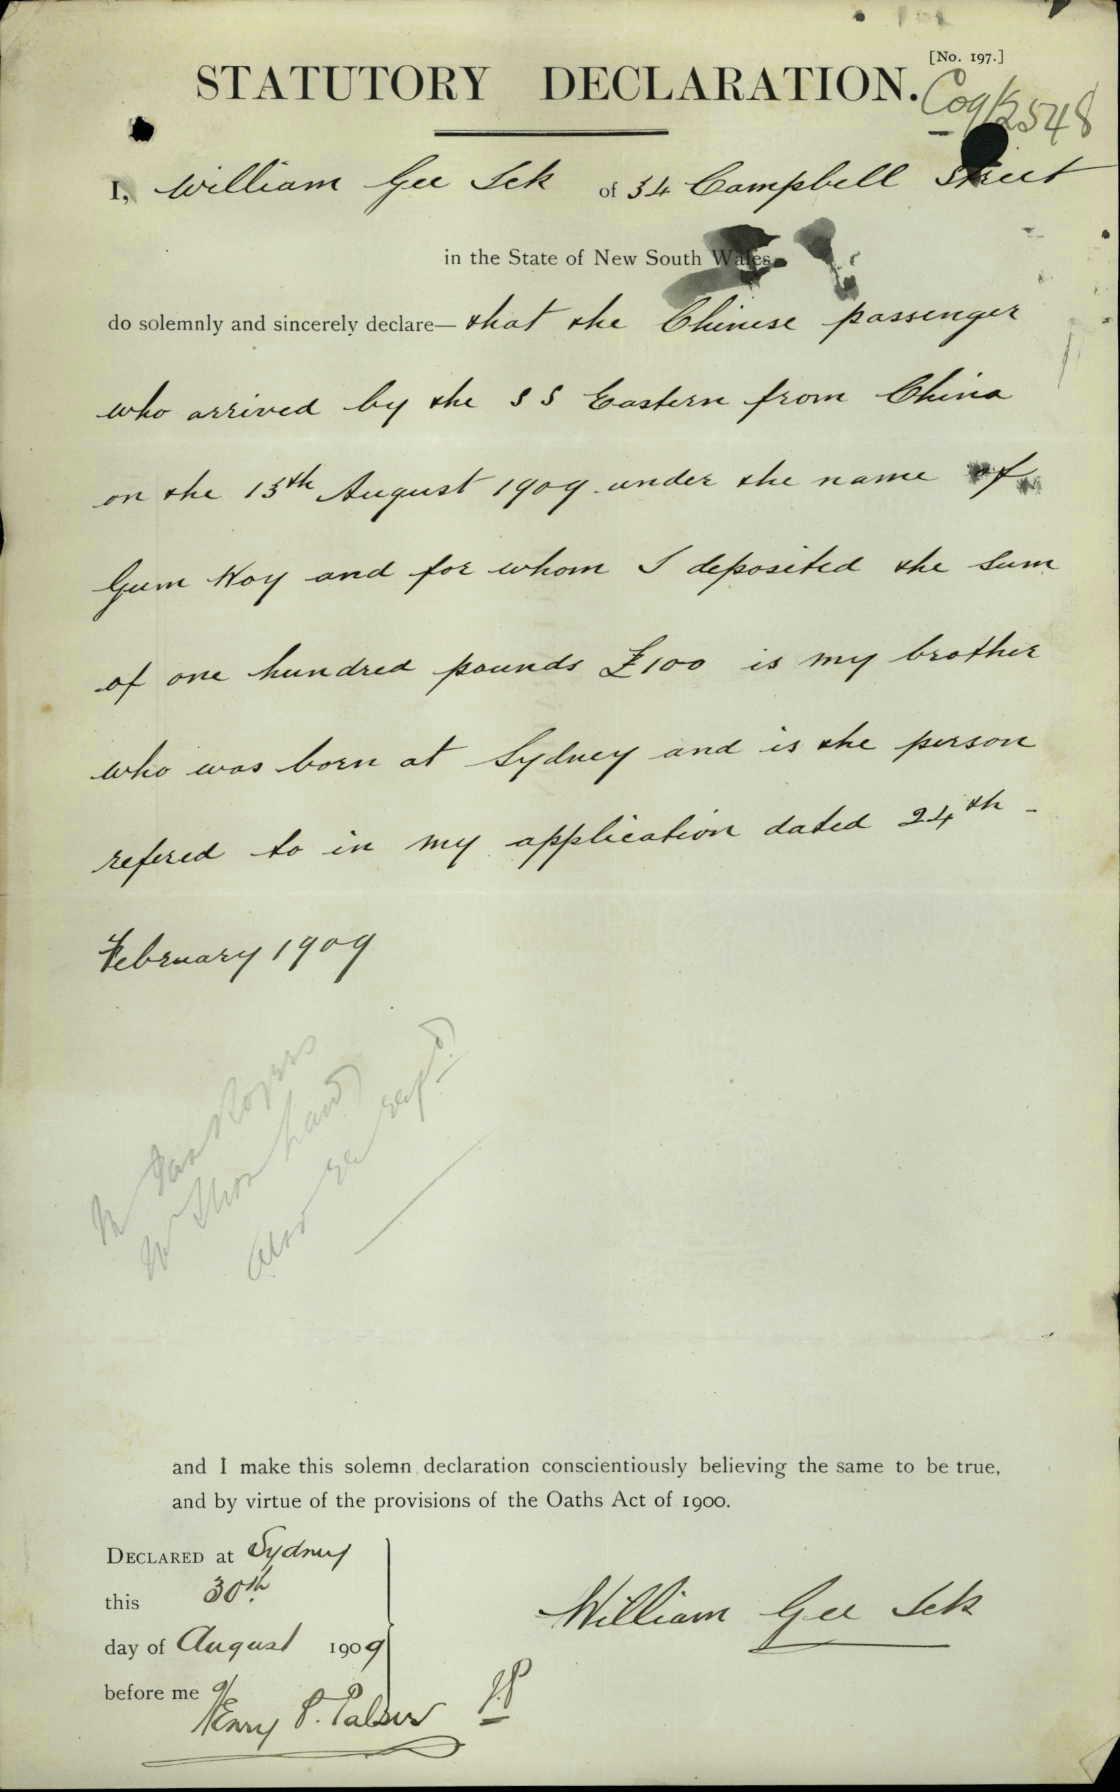 [No. 197.]
STATUTORY DECLARATION.
Co9/2548
I, William Gee Sek of 34 Campbell Street
in the State of New South Wales
do solemnly and sincerely declare— that the Chinese passenger
who arrived by the S S Eastern from China
on the 13th August 1909 under the name of
Gum Hoy and for whom I deposited the sum
of one hundred pounds £100 is my brother
who was born at Sydney and is the person
refered to in my application dated 24th -
February 1909
and I make this solemn declaration conscientiously believing the same to be true,
and by virtue of the provisions of the Oaths Act of 1900.
DECLARED at Sydney
this 30th
day of August 1909
before me
William Gee Sek
Henry P. Palser J.P